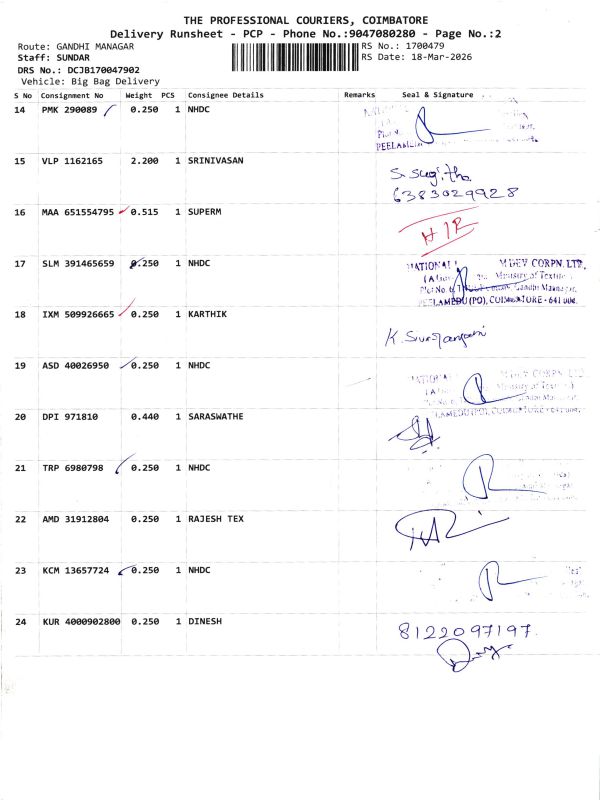 THE PROFESSIONAL COURIERS, COIMBATORE
Delivery Runsheet - PCP - Phone No.:9047080280 - Page No.:2
Route: GANDHI MANAGAR RS No.: 1700479
Staff: SUNDAR RS Date: 18-Mar-2026
DRS No.: DCJB170047902
Vehicle: Big Bag Delivery
S No Consignment No Weight PCS Consignee Details Remarks Seal & Signature
14 PMK 290089 0.250 1 NHDC
PEELAMEDU
15 VLP 1162165 2.200 1 SRINIVASAN
S. Sugitha
6383029928
16 MAA 651554795 0.515 1 SUPERM
H/R
17 SLM 391465659 0.250 1 NHDC
NATIONAL M DEV CORPN. LTD.
Ministry of Textile
Plot No. 6, Gandhi Maanagar,
PEELAMEDU (PO), COIMBATORE - 641 004.
18 IXM 509926665 0.250 1 KARTHIK
19 ASD 40026950 0.250 1 NHDC
NATIONAL M DEV CORPN. LTD
Ministry of Textile
20 DPI 971810 0.440 1 SARASWATHE
21 TRP 6980798 0.250 1 NHDC
22 AMD 31912804 0.250 1 RAJESH TEX
23 KCM 13657724 0.250 1 NHDC
24 KUR 4000902800 0.250 1 DINESH
8122097197.